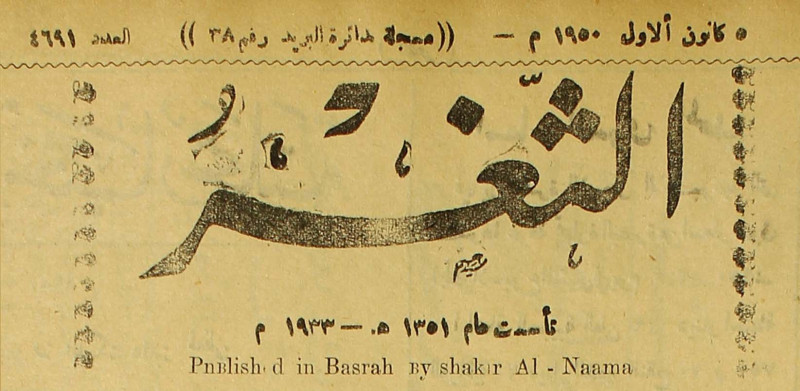 ٥ كانون ألاول ١٩٥٠ م — ((مسجلة بدائرة البريد رقم ٣٨)) العدد ٤٦٩١
الثَّغْرُ
تأسست عام ١٣٥١ هـ — ١٩٣٣ م
Published in Basrah By shakir Al - Naama